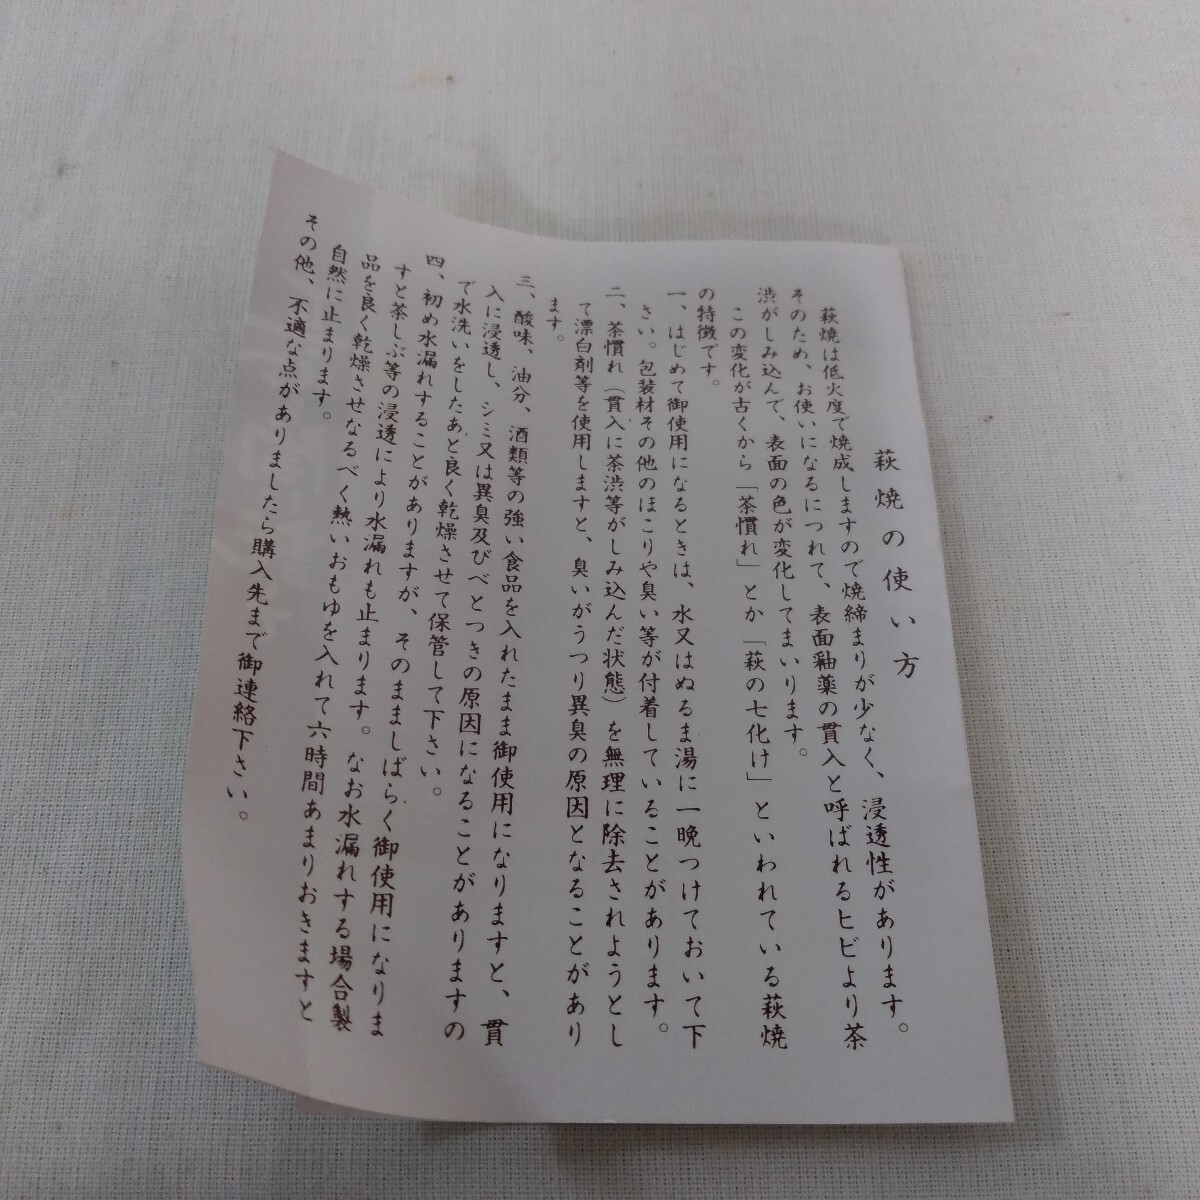 萩焼の使い方
萩焼は低火度で焼成しますので焼締まりが少なく、浸透性があります。
そのため、お使いになるにつれて、表面釉薬の貫入と呼ばれるヒビより茶
渋がしみ込んで、表面の色が変化してまいります。
この変化が古くから「茶慣れ」とか「萩の七化け」といわれている萩焼
の特徴です。
一、はじめて御使用になるときは、水又はぬるま湯に一晩つけておいて下
さい。包装材その他のほこりや臭い等が付着していることがあります。
二、茶慣れ（貫入に茶渋等がしみ込んだ状態）を無理に除去されようとし
て漂白剤等を使用しますと、臭いがうつり異臭の原因となることがあり
ます。
三、酸味、油分、酒類等の強い食品を入れたまま御使用になりますと、貫
入に浸透し、シミ又は異臭及びべとつきの原因になることがありますの
で水洗いをしたあと良く乾燥させて保管して下さい。
四、初め水漏れすることがありますが、そのまましばらく御使用になりま
すと茶しぶ等の浸透により水漏れも止まります。なお水漏れする場合製
品を良く乾燥させなるべく熱いおもゆを入れて六時間あまりおきますと
自然に止まります。
その他、不適な点がありましたら購入先まで御連絡下さい。